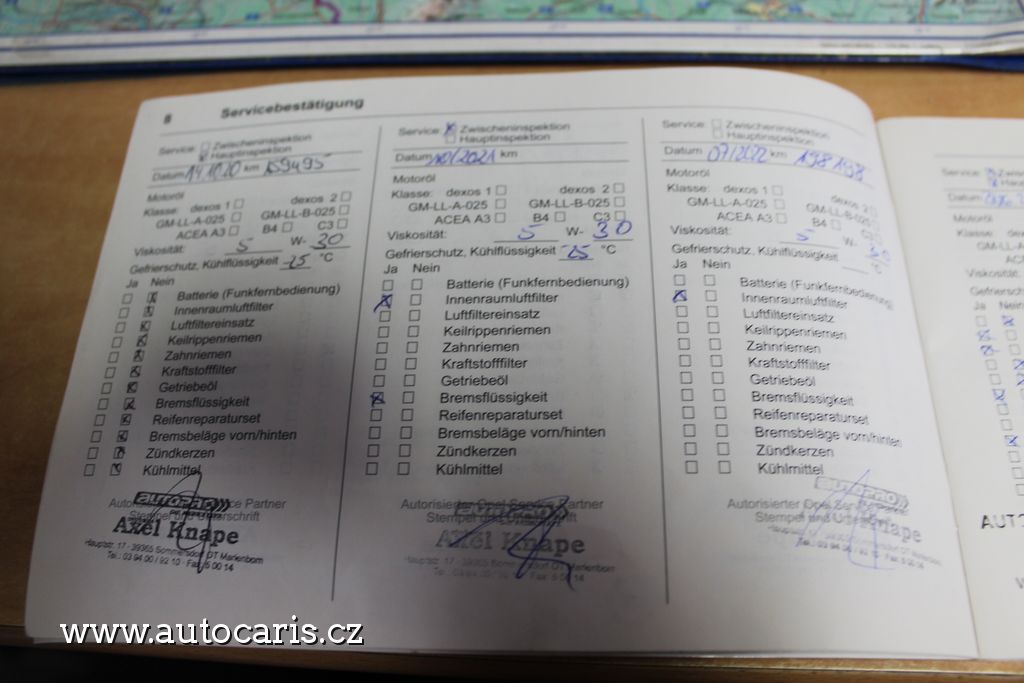 8 Servicebestätigung
Service: Zwischeninspektion
Hauptinspektion
Datum 14.10.20 km 159495
Motoröl
Klasse: dexos 1 dexos 2
GM-LL-A-025 GM-LL-B-025
ACEA A3 B4 C3
Viskosität: 5 W- 30
Gefrierschutz, Kühlflüssigkeit -25 °C
Ja Nein
Batterie (Funkfernbedienung)
Innenraumluftfilter
Luftfiltereinsatz
Keilrippenriemen
Zahnriemen
Kraftstofffilter
Getriebeöl
Bremsflüssigkeit
Reifenreparaturset
Bremsbeläge vorn/hinten
Zündkerzen
Kühlmittel
Axel Knape
Hauptstr. 17 - 39365 Sommersdorf OT Marienborn
Tel.: 03 94 00 / 92 10 · Fax: 5 00 14
Service: Zwischeninspektion
Hauptinspektion
Datum 10/2021 km
Motoröl
Klasse: dexos 1 dexos 2
GM-LL-A-025 GM-LL-B-025
ACEA A3 B4 C3
Viskosität: 5 W- 30
Gefrierschutz, Kühlflüssigkeit -25 °C
Ja Nein
Batterie (Funkfernbedienung)
Innenraumluftfilter
Luftfiltereinsatz
Keilrippenriemen
Zahnriemen
Kraftstofffilter
Getriebeöl
Bremsflüssigkeit
Reifenreparaturset
Bremsbeläge vorn/hinten
Zündkerzen
Kühlmittel
Autorisierter Opel Service Partner
Stempel und Unterschrift
Axel Knape
Service: Zwischeninspektion
Hauptinspektion
Datum 07/2022 km 198198
Motoröl
Klasse: dexos 1 dexos 2
GM-LL-A-025 GM-LL-B-025
ACEA A3 B4 C3
Viskosität: 5 W-
Gefrierschutz, Kühlflüssigkeit °C
Ja Nein
Batterie (Funkfernbedienung)
Innenraumluftfilter
Luftfiltereinsatz
Keilrippenriemen
Zahnriemen
Kraftstofffilter
Getriebeöl
Bremsflüssigkeit
Reifenreparaturset
Bremsbeläge vorn/hinten
Zündkerzen
Kühlmittel
Autorisierter Opel Service
Stempel und
Service:
Datum
Motoröl
Ja Nein
www.autocaris.cz